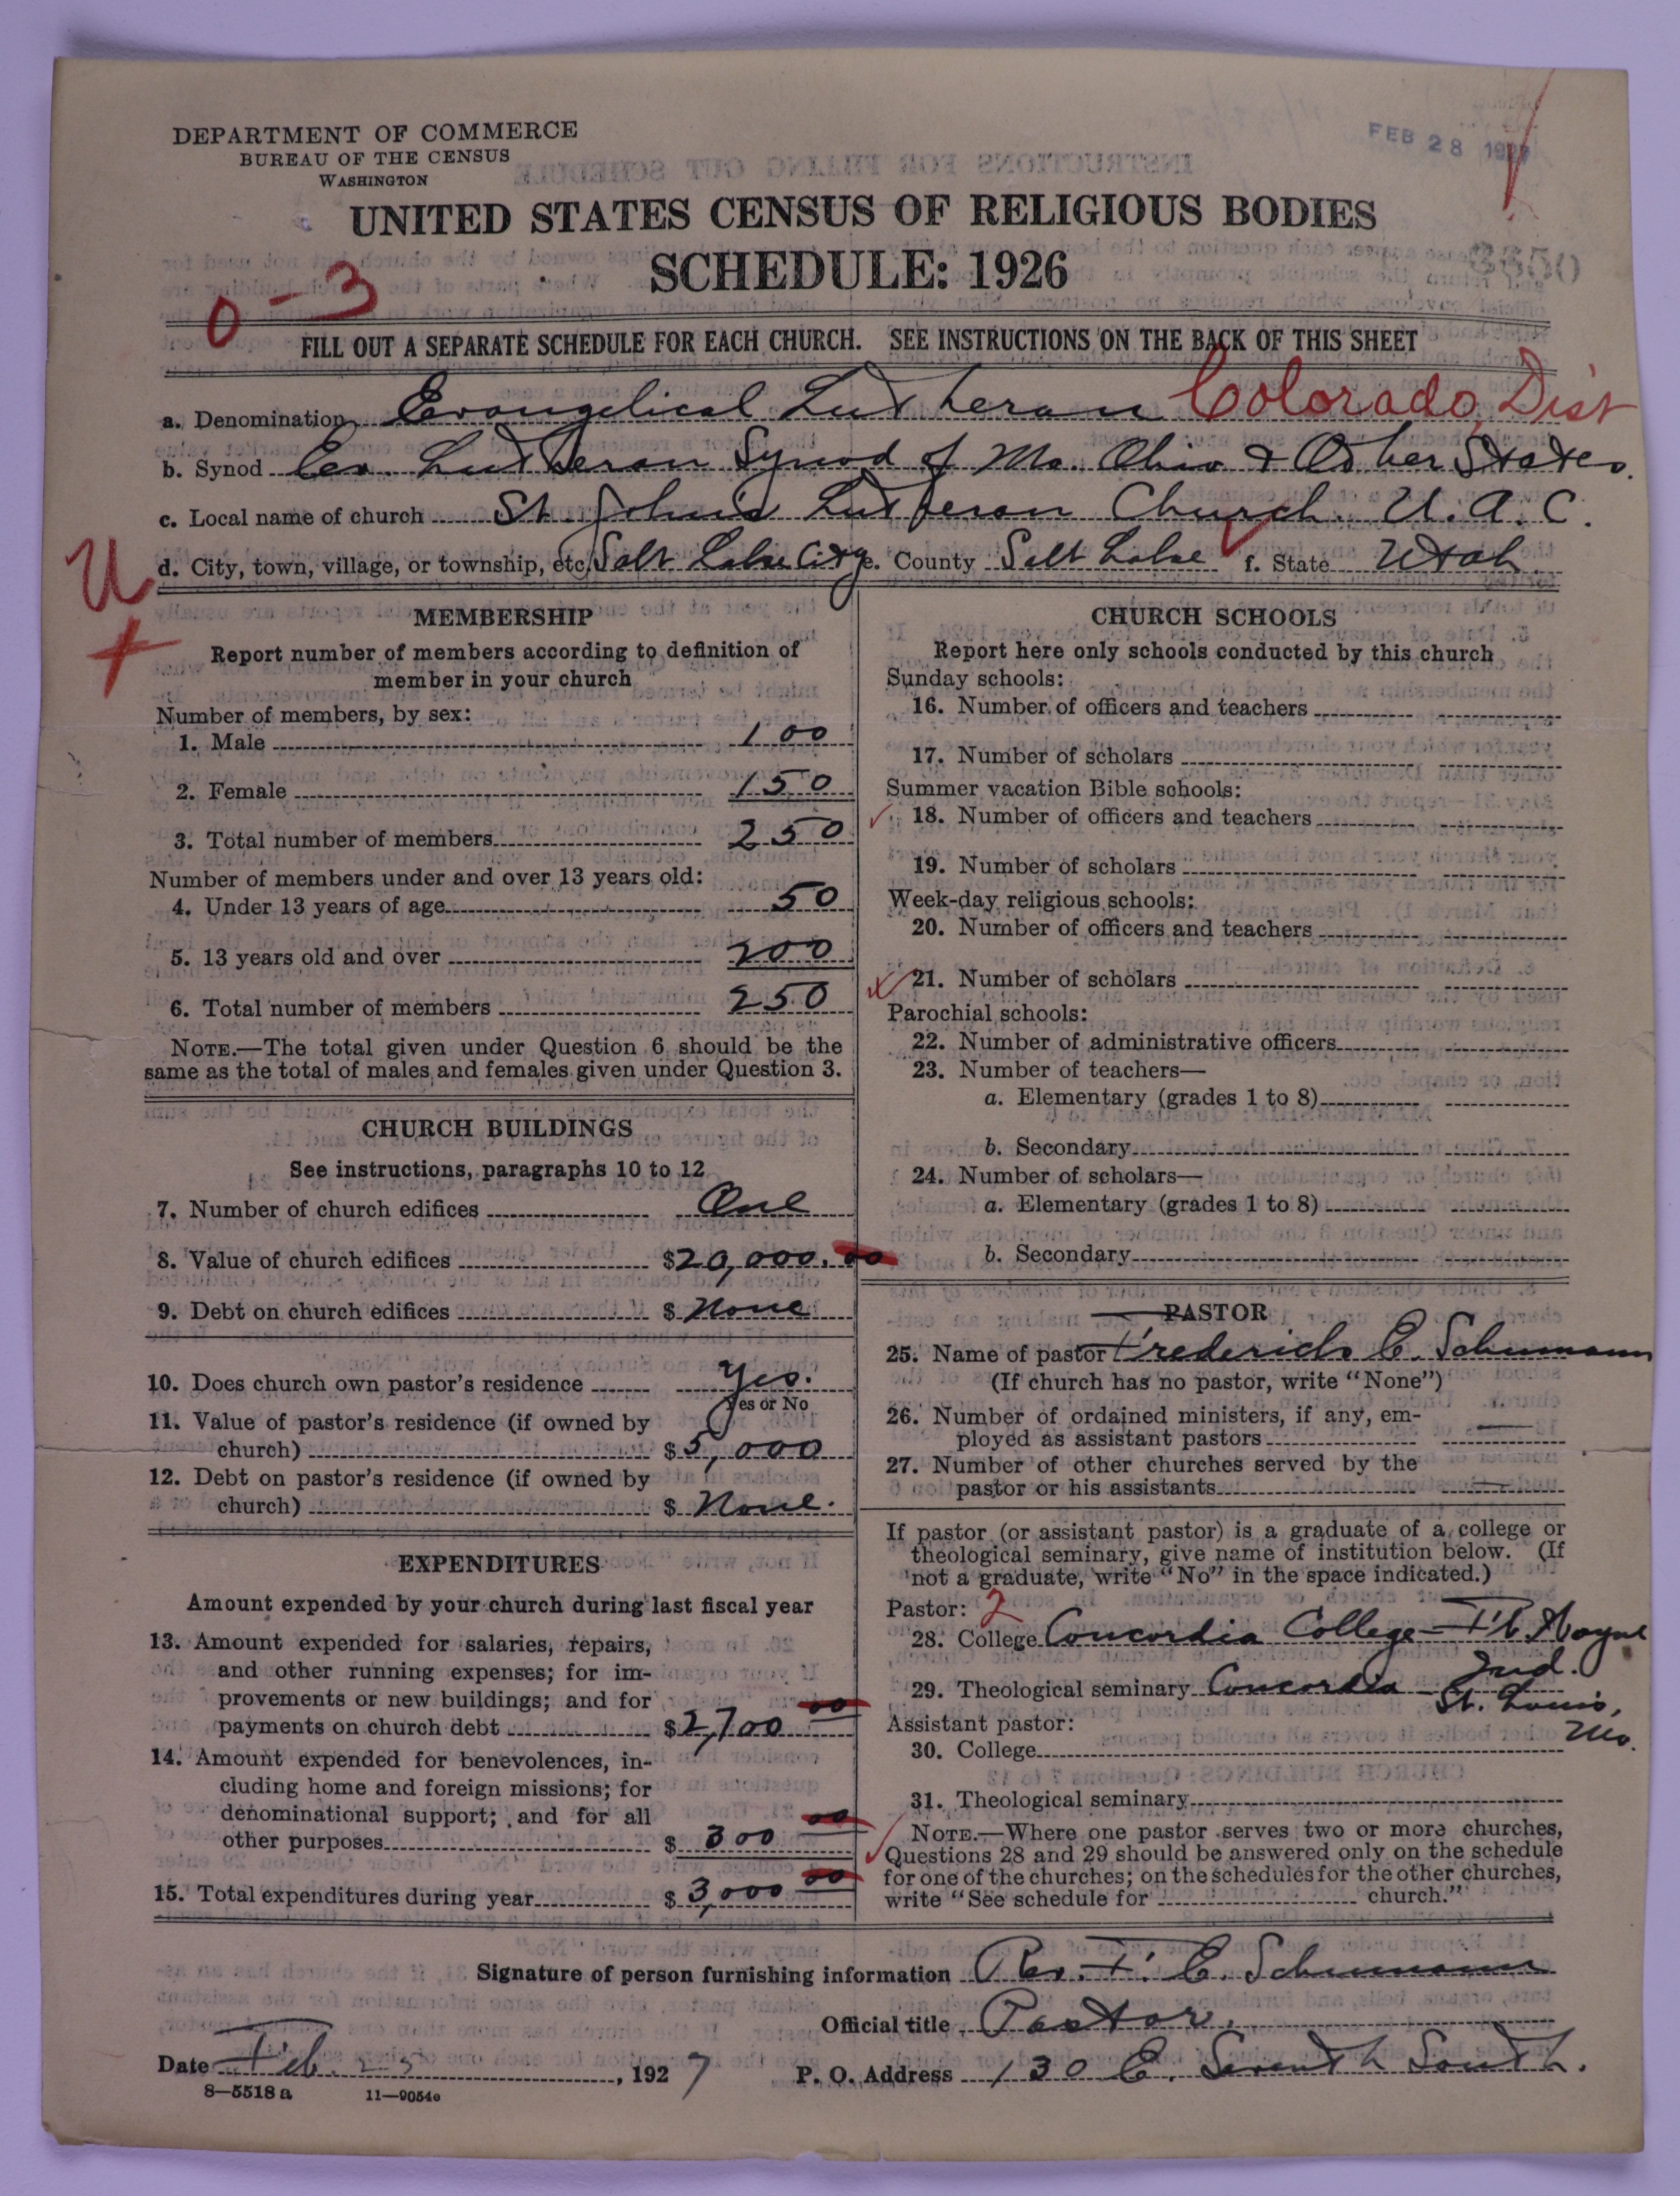 DEPARTMENT OF COMMERCE
BUREAU OF THE CENSUS
WASHINGTON
FEB 28 1927
UNITED STATES CENSUS OF RELIGIOUS BODIES
SCHEDULE: 1926
0-3
FILL OUT A SEPARATE SCHEDULE FOR EACH CHURCH. SEE INSTRUCTIONS ON THE BACK OF THIS SHEET
a. Denomination Evangelical Lutheran Colorado, Dist
b. Synod Ev. Lutheran Synod of Mo. Ohio & Other States.
c. Local name of church St. John's Lutheran Church U.A.C.
d. City, town, village, or township, etc. Salt Lake City e. County Salt Lake f. State Utah
U
MEMBERSHIP
Report number of members according to definition of
member in your church
Number of members, by sex:
1. Male 100
2. Female 150
3. Total number of members 250
Number of members under and over 13 years old:
4. Under 13 years of age 50
5. 13 years old and over 200
6. Total number of members 250
NOTE.—The total given under Question 6 should be the
same as the total of males and females given under Question 3.
CHURCH BUILDINGS
See instructions, paragraphs 10 to 12
7. Number of church edifices One
8. Value of church edifices $20,000.00
9. Debt on church edifices $ None
10. Does church own pastor's residence Yes.
Yes or No
11. Value of pastor's residence (if owned by
church) $5,000
12. Debt on pastor's residence (if owned by
church) $ None.
EXPENDITURES
Amount expended by your church during last fiscal year
13. Amount expended for salaries, repairs,
and other running expenses; for im-
provements or new buildings; and for
payments on church debt $2,700 00
14. Amount expended for benevolences, in-
cluding home and foreign missions; for
denominational support; and for all
other purposes $ 300 00
15. Total expenditures during year $ 3,000 00
CHURCH SCHOOLS
Report here only schools conducted by this church
Sunday schools:
16. Number of officers and teachers
17. Number of scholars
Summer vacation Bible schools:
18. Number of officers and teachers
19. Number of scholars
Week-day religious schools:
20. Number of officers and teachers
21. Number of scholars
Parochial schools:
22. Number of administrative officers
23. Number of teachers—
a. Elementary (grades 1 to 8)
b. Secondary
24. Number of scholars—
a. Elementary (grades 1 to 8)
b. Secondary
PASTOR
25. Name of pastor Frederich C. Schumann
(If church has no pastor, write "None")
26. Number of ordained ministers, if any, em-
ployed as assistant pastors
27. Number of other churches served by the
pastor or his assistants
If pastor (or assistant pastor) is a graduate of a college or
theological seminary, give name of institution below. (If
not a graduate, write "No" in the space indicated.)
Pastor: 2
28. College Concordia College—Ft. Wayne
Ind.
29. Theological seminary Concordia St. Louis,
Mo.
Assistant pastor:
30. College
31. Theological seminary
NOTE.—Where one pastor serves two or more churches,
Questions 28 and 29 should be answered only on the schedule
for one of the churches; on the schedules for the other churches,
write "See schedule for church."
Signature of person furnishing information Rev. F. C. Schumann
Official title Pastor.
Date Feb. 25, 1927 P. O. Address 130 E. Seventh South.
8—5518 a 11—9054c